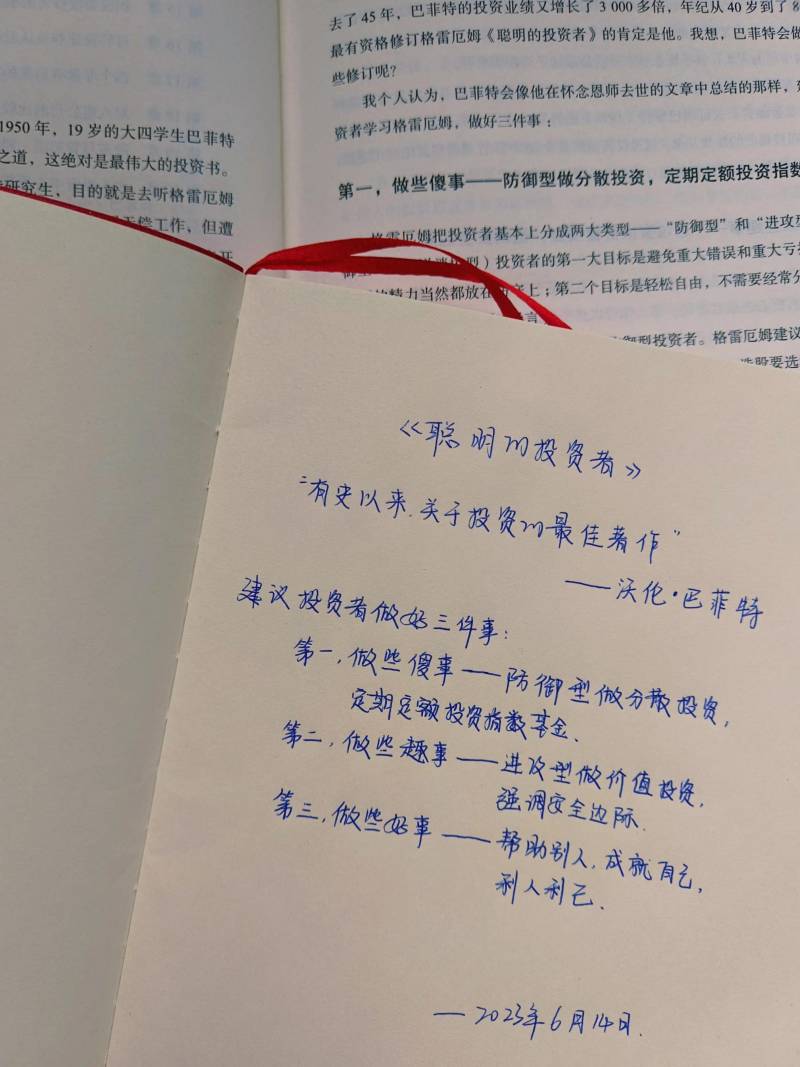 去了 45 年，巴菲特的投资业绩又增长了 3 000 多倍，年纪从 40 岁到了 8
最有资格修订格雷厄姆《聪明的投资者》的肯定是他。我想，巴菲特会做
些修订呢？
我个人认为，巴菲特会像他在怀念恩师去世的文章中总结的那样，建
资者学习格雷厄姆，做好三件事：
第一，做些傻事——防御型做分散投资，定期定额投资指数
格雷厄姆把投资者基本上分成两大类型——“防御型”和“进攻型
型）投资者的第一大目标是避免重大错误和重大亏损
的精力当然都放在
上；第二个目标是轻松自由，不需要经常分
御型投资者。格雷厄姆建议
选股要选
1950 年，19 岁的大四学生巴菲特
之道，这绝对是最伟大的投资书。
研究生，目的就是去听格雷厄姆
无偿工作，但遭
《聪明的投资者》
“有史以来，关于投资的最佳著作”
——沃伦·巴菲特
建议投资者做好三件事：
第一，做些傻事——防御型做分散投资，
定期定额投资指数基金.
第二，做些趣事——进攻型做价值投资，
强调安全边际.
第三，做些好事——帮助别人，成就自己，
利人利己.
—2023年6月14日.